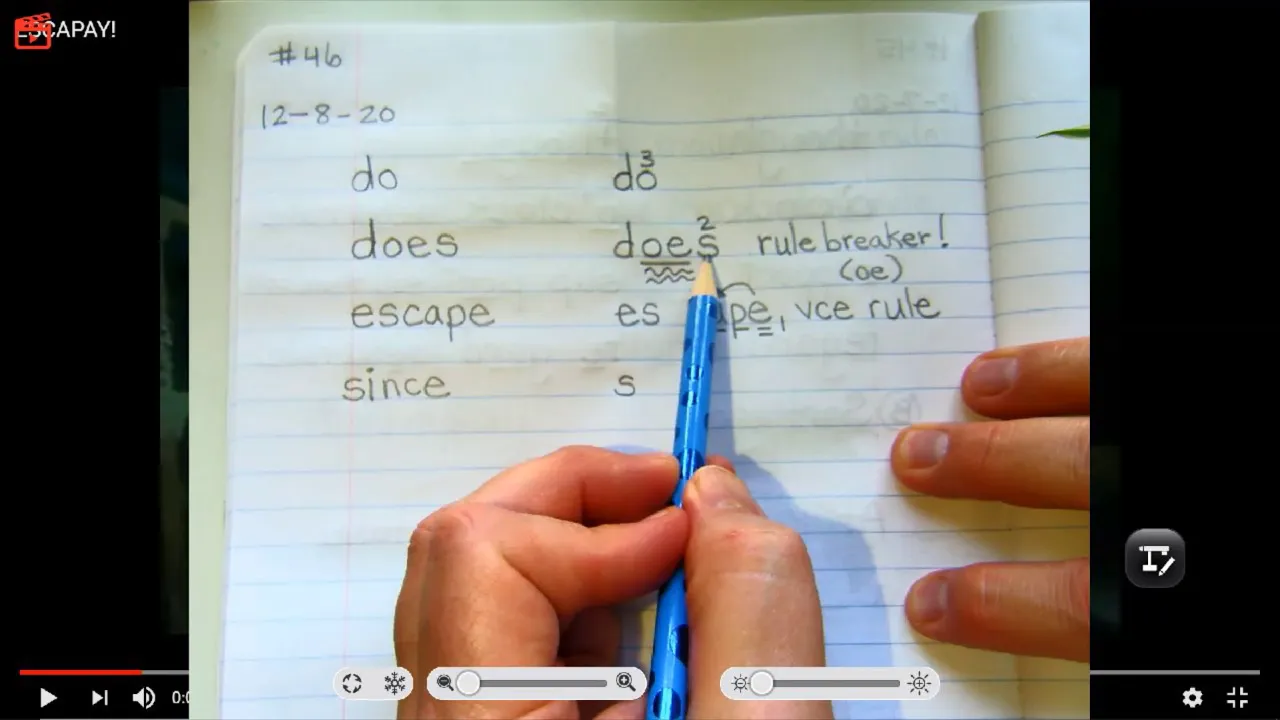 ESCAPAY!
#46
12-8-20
do do 3
does does 2 rule breaker!
(oe)
escape es pe, vce rule
since s